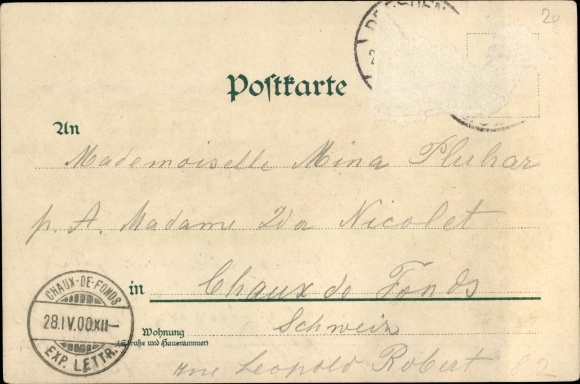 20
DRESDEN
Postkarte
An
Mademoiselle Mina Pluhar
p. A. Madame Ida Nicolet
in Chaux de Fonds
Schweiz
Wohnung
(Straße und Hausnummer)
rue Leopold Robert 82
CHAUX-DE-FONDS
28.IV.00.XII-
EXP. LETTR.